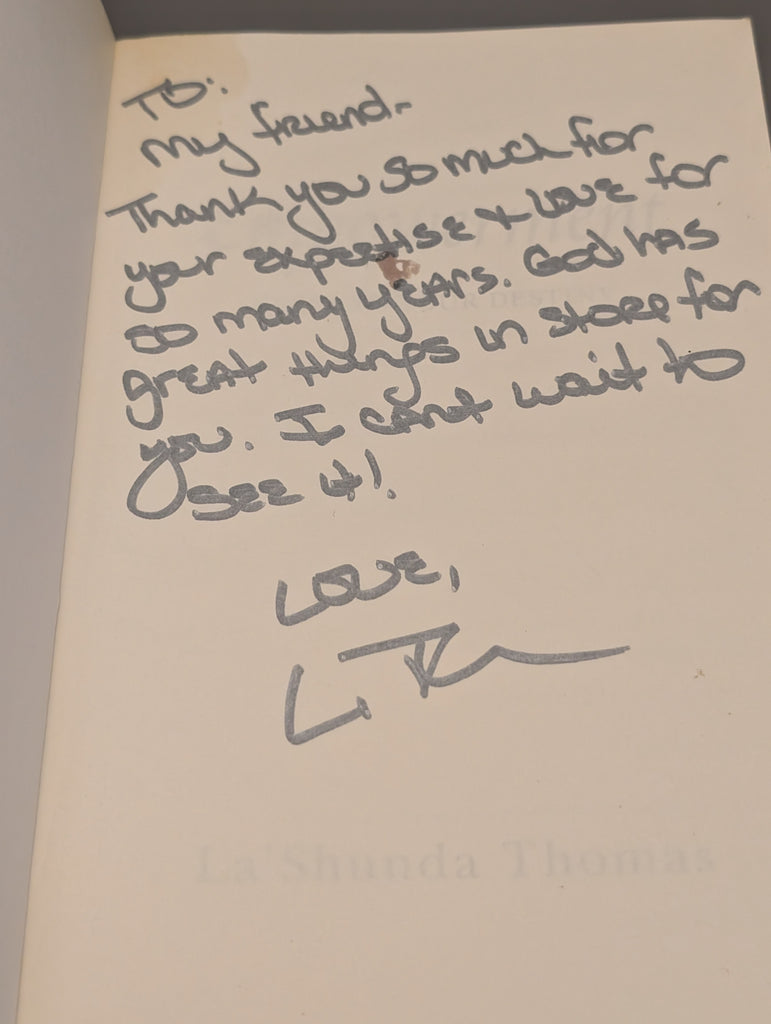 TO:
My friend-
Thank you so much for
your expertise + Love for
so many years. God has
great things in store for
you. I cant wait to
see it!
Love,
L. Th
La'Shunda Thomas